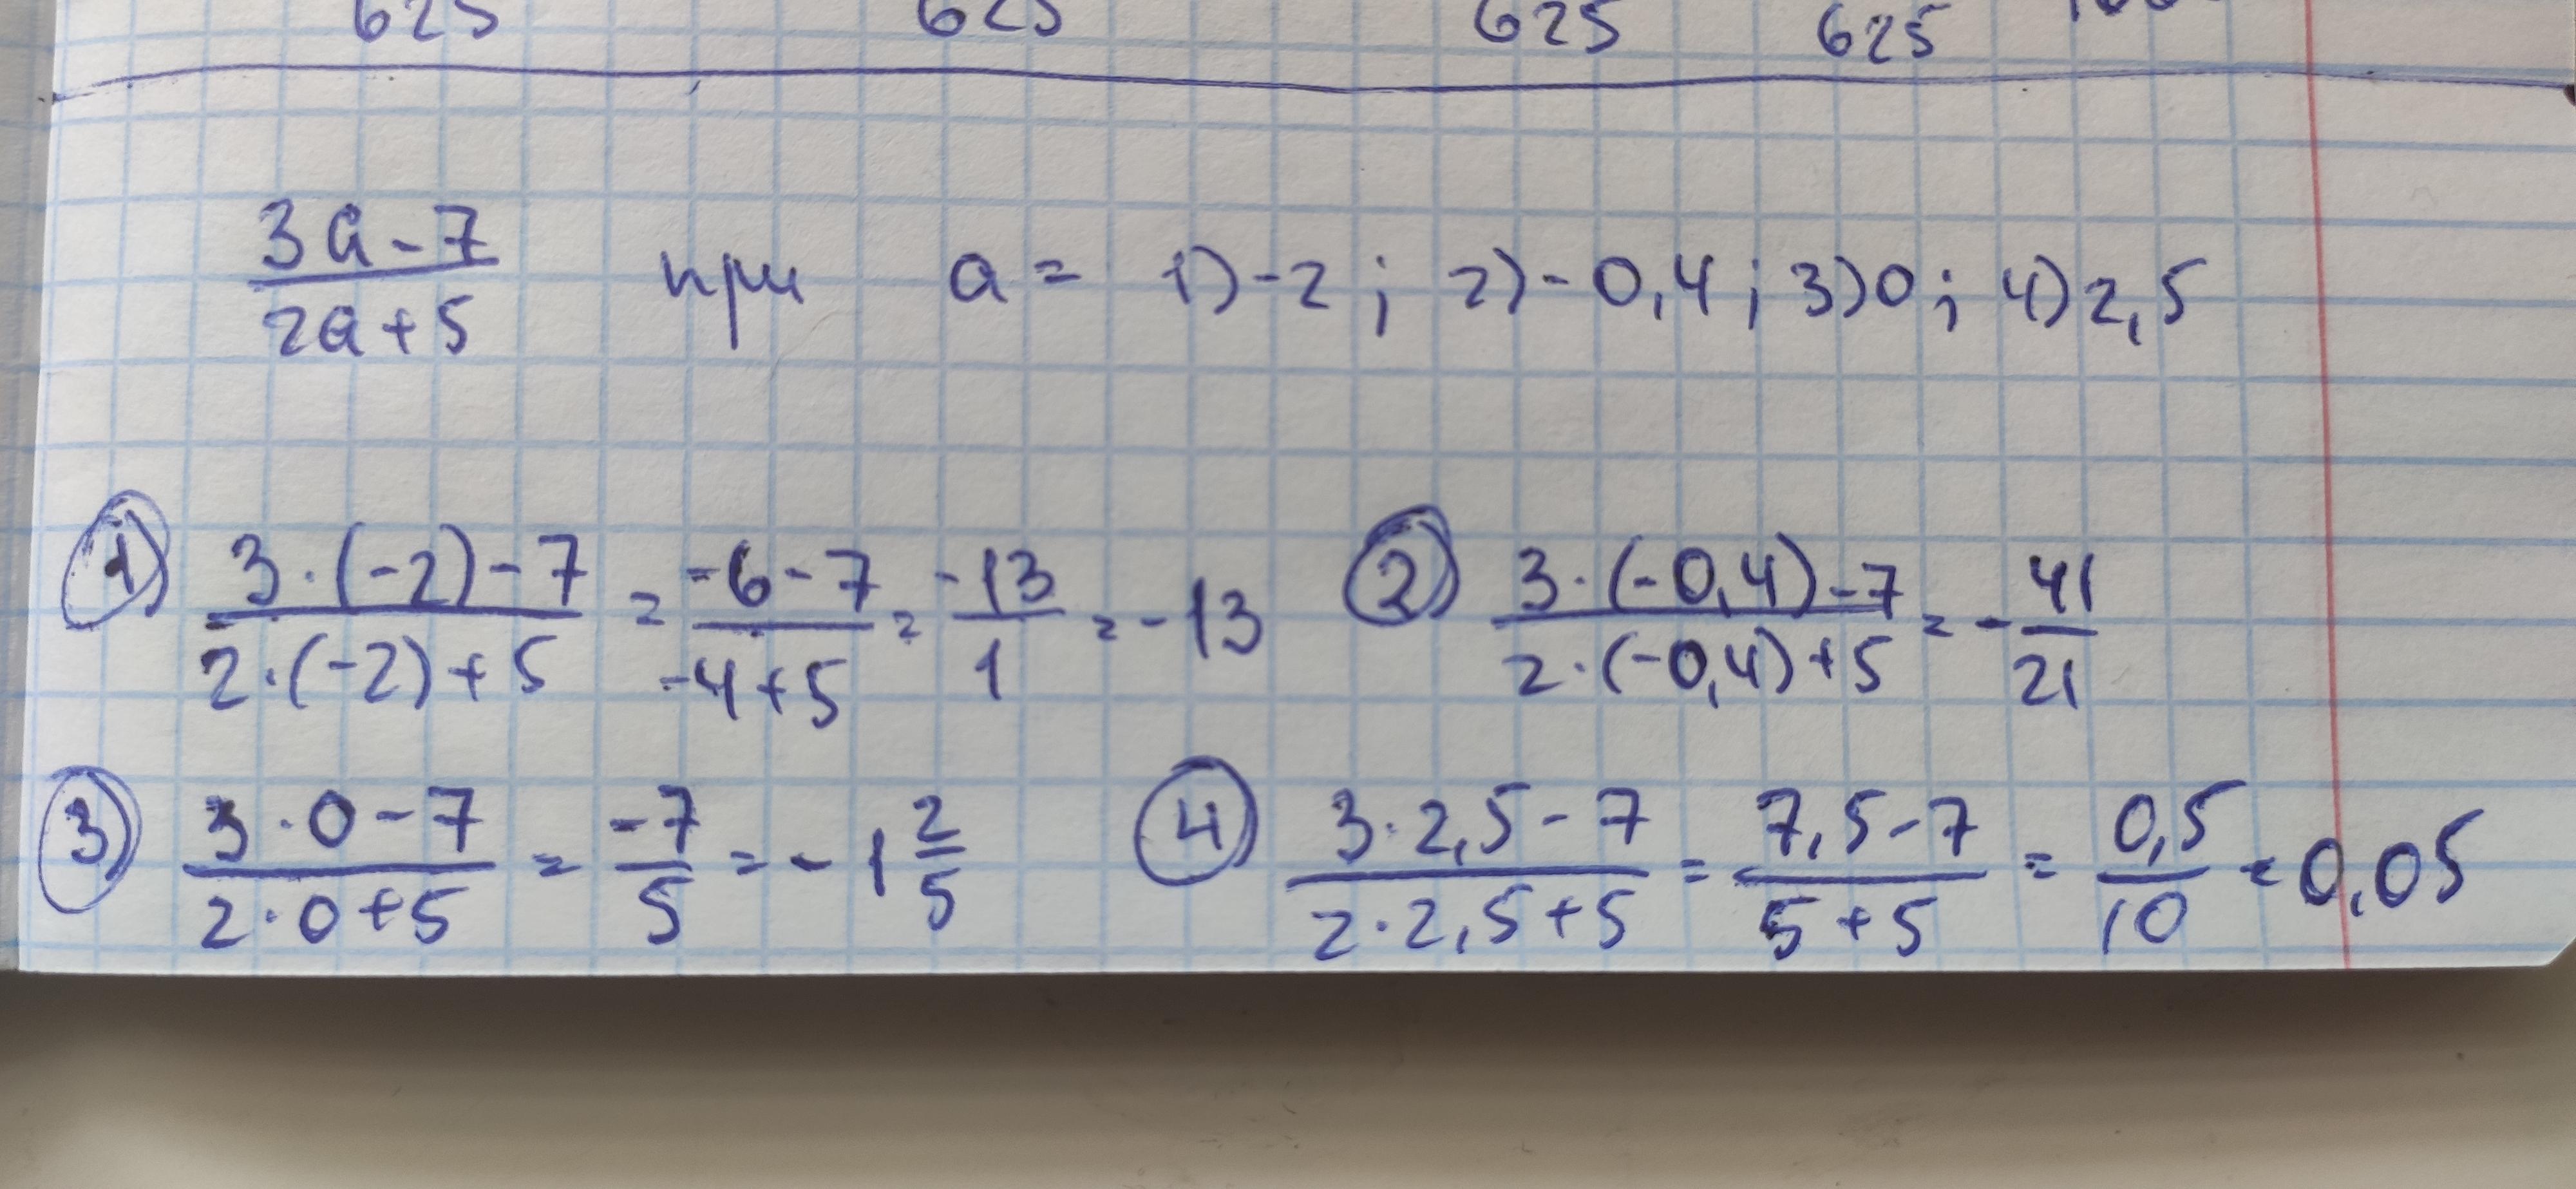 625 625 625 625
(3a-7)/(2a+5) при a = 1) -2 ; 2) -0,4 ; 3) 0 ; 4) 2,5
1) (3·(-2)-7)/(2·(-2)+5) = (-6-7)/(-4+5) = -13/1 = -13 2) (3·(-0,4)-7)/(2·(-0,4)+5) = -41/21
3) (3·0-7)/(2·0+5) = -7/5 = -1 2/5 4 (3·2,5-7)/(2·2,5+5) = (7,5-7)/(5+5) = 0,5/10 = 0,05